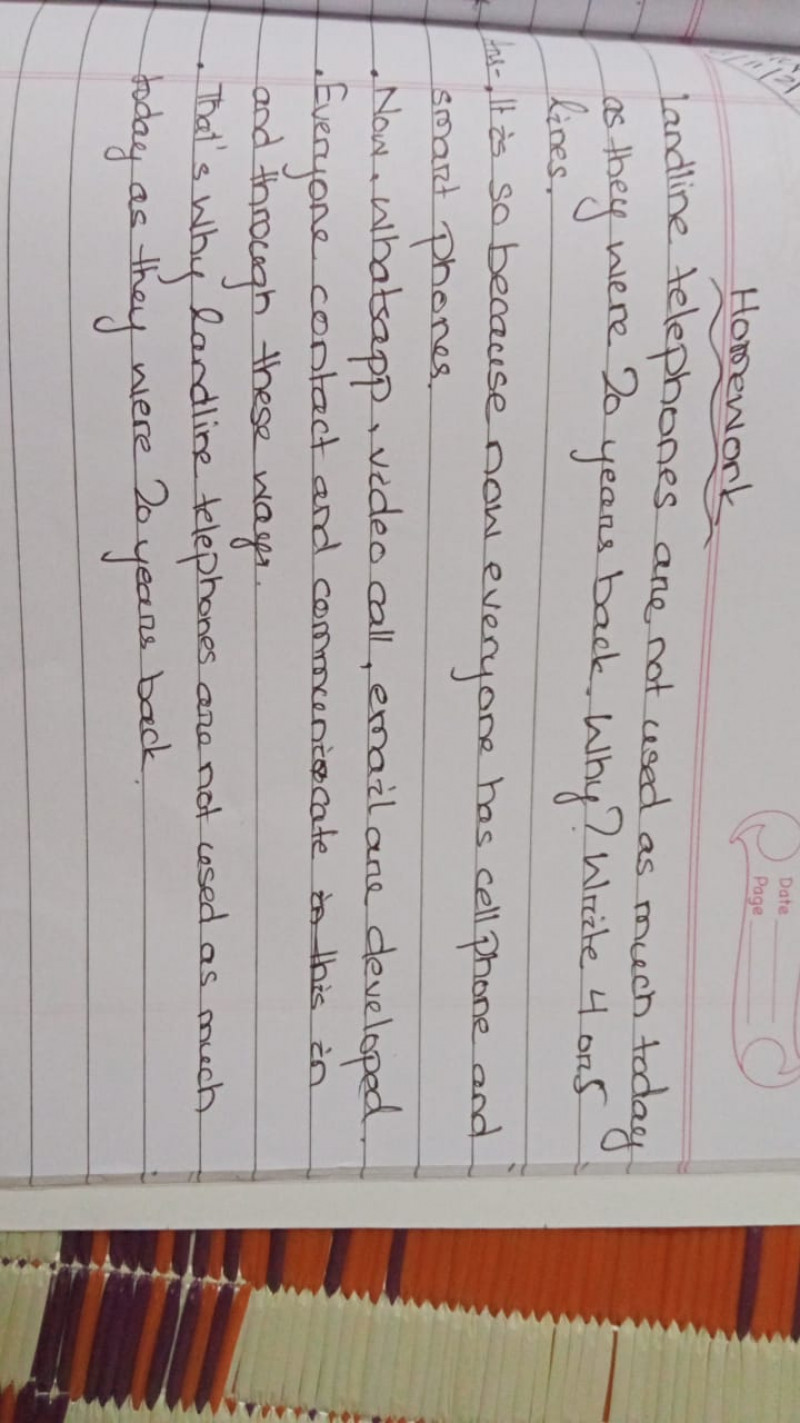 Date
Page
Homework
Landline telephones are not used as much today
as they were 20 years back. Why? Write 4 or 5
lines.
Ans-. It is so because now everyone has cell phone and
smart phones.
. Now, Whatsapp, video call, email are developed.
. Everyone contact and communicate in this in
and through these ways.
. That's why landline telephones are not used as much
today as they were 20 years back.